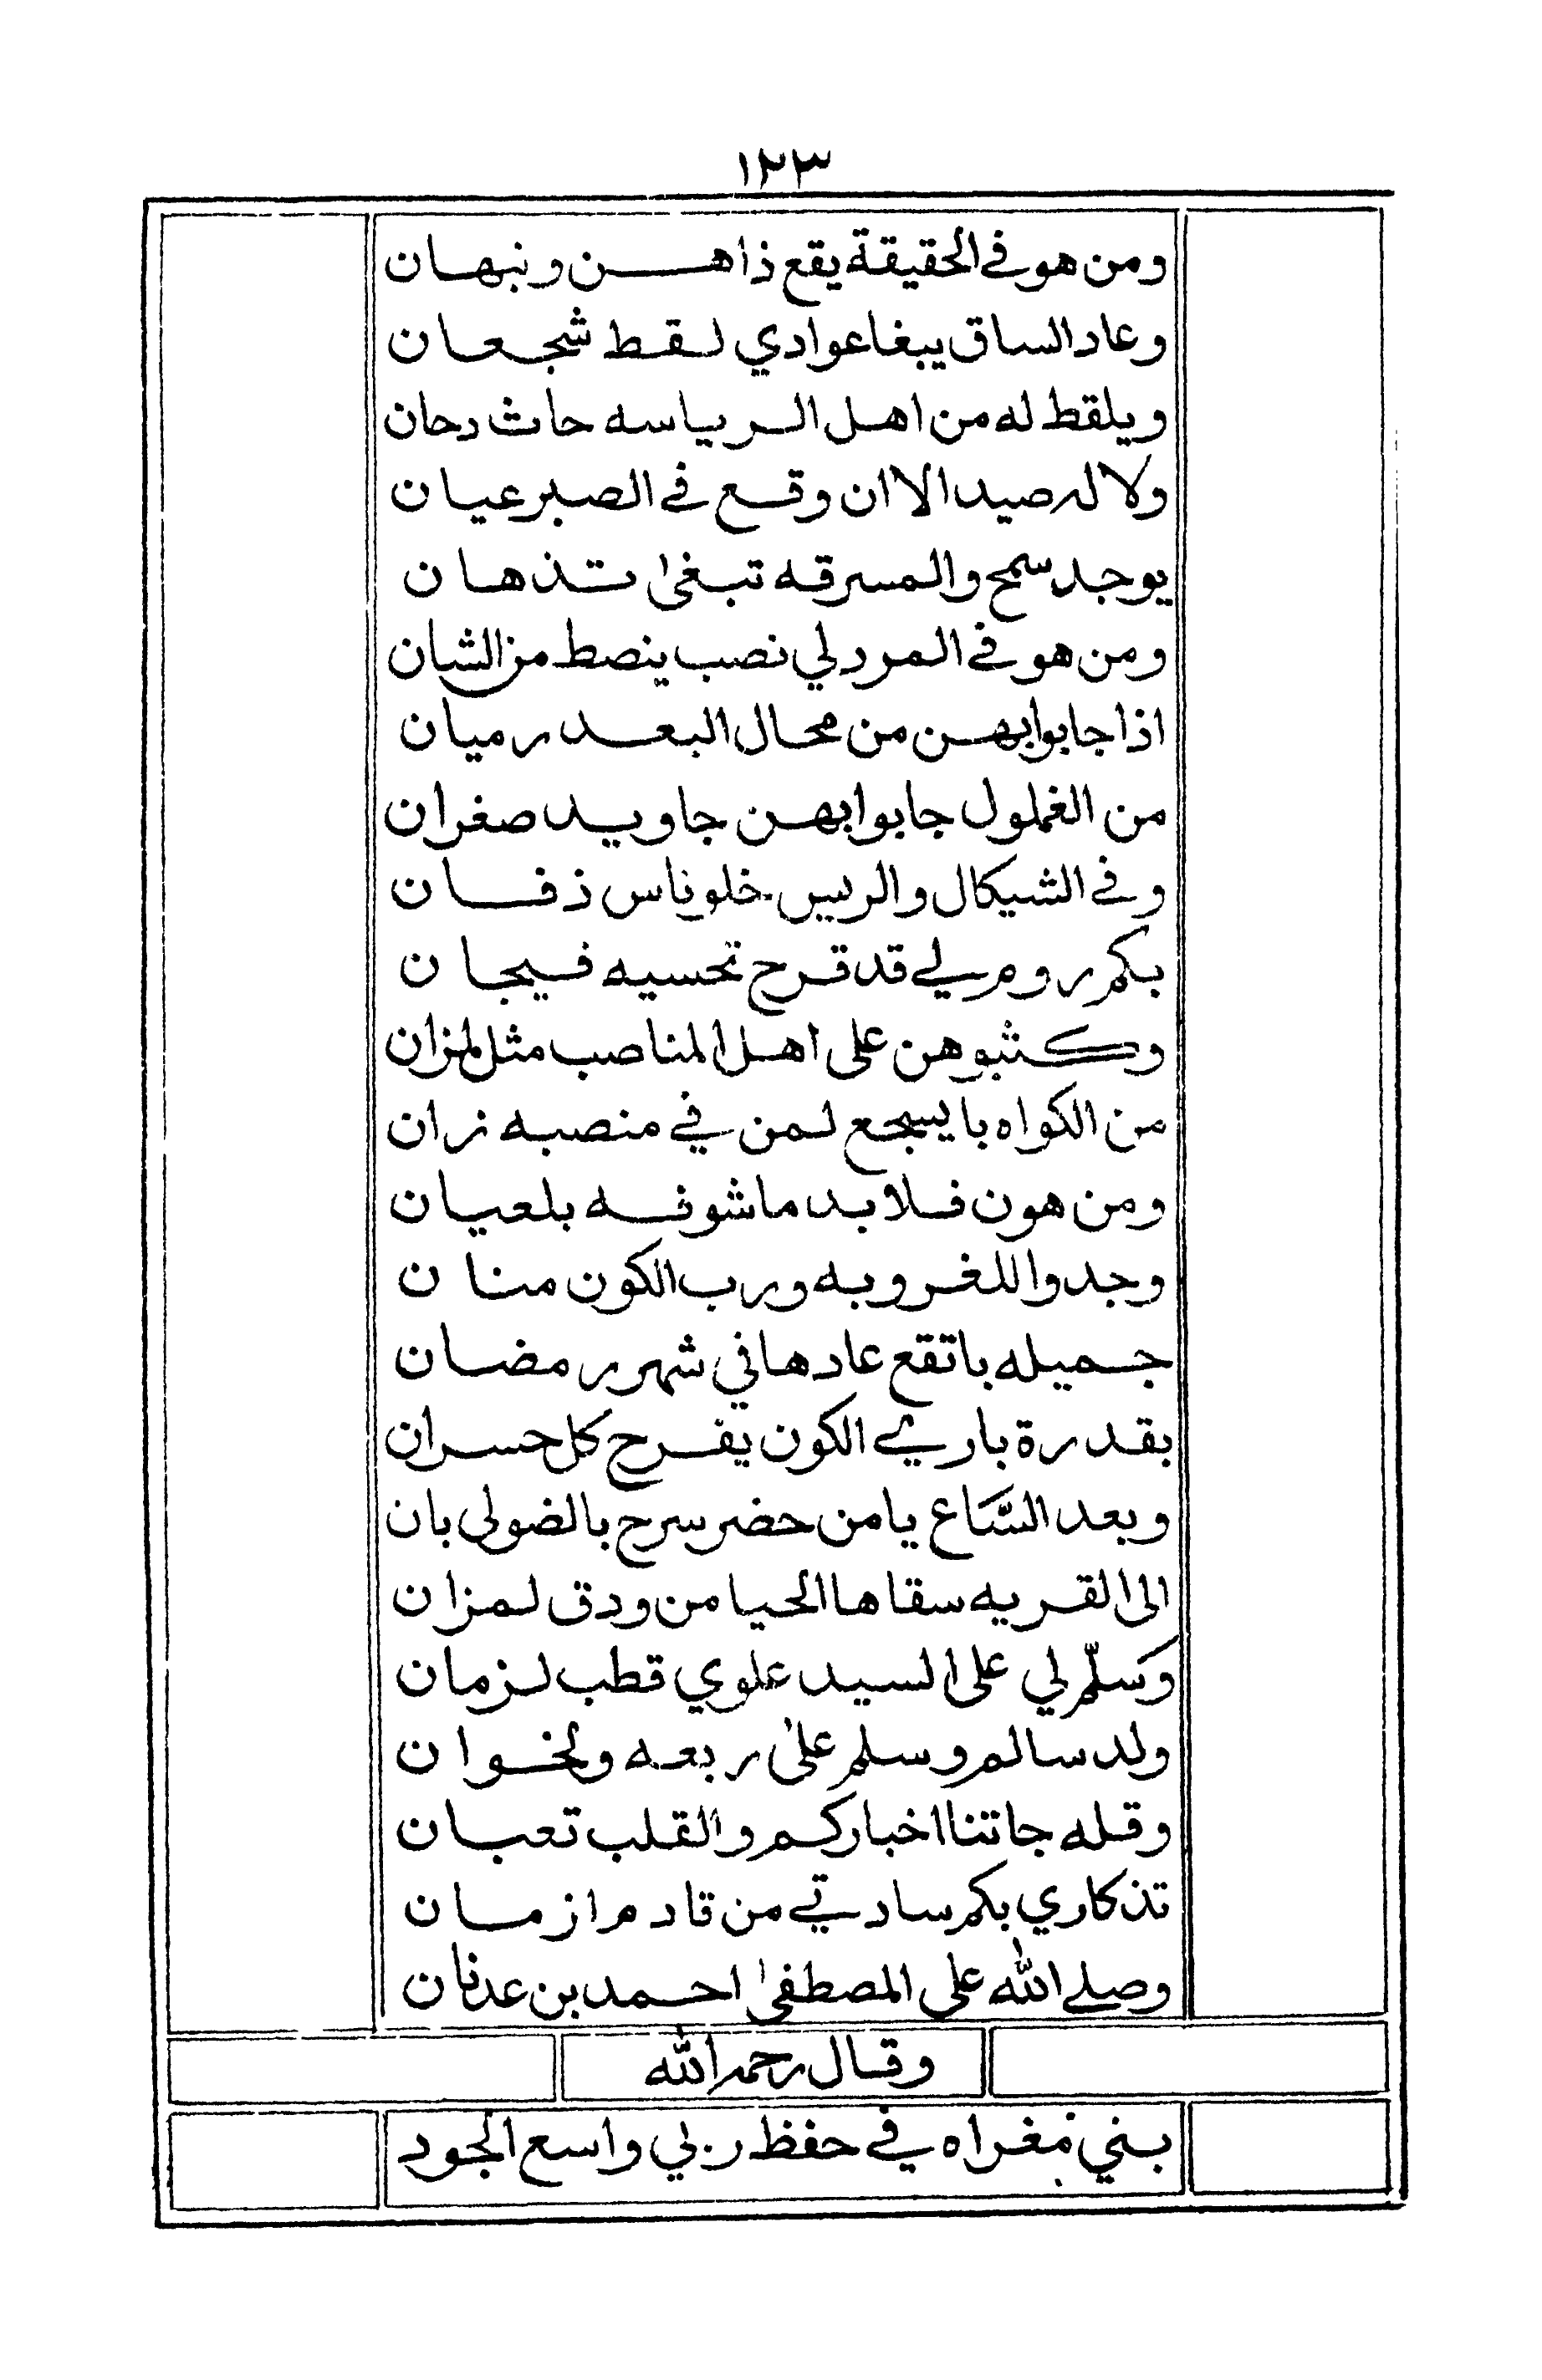 ١٢٣
ومن هو في الحقيقة يقع ذاهن ونبهان
وعاد الساق يبغا عوادي لقط شجعان
ويلقط له من اهل الرياسه حاث رحان
ولا له صيد الا ان وقع في الصبر عيان
يوجد سمح والمسرقه تبغى تذهان
ومن هو في المرد لي نصب ينصط من الشان
اذا جابوا بهن من محال البعد رميان
من الغملول جابوا بهن جاويد صغران
وفي الشيكال والريس خلو ناس زفان
بكم روم لي قد قرح تحسيه فيجان
وكثبوهن على اهل المناصب مثل لمزان
من الكواه با يسجع لمن في منصبه نران
ومن هون فلا بد ما شوفه بلعيان
وجدوا للغروبه ورب الكون منان
جميله باتقع عادها في شهر رمضان
بقدرة باري الكون يفرح كل حسران
وبعد السَّاع يا من حضر سرح بالضولي بان
الى القريه سقاها الحيا من ودق لمزان
وَسلّم لي على السيد علوي قطب لزمان
ولد سالم وسلم على ربعه ولخوان
وقله جاتنا اخباركم والقلب تعبان
تذكاري بكم سادتي من قادم ازمان
وصلى الله على المصطفى احمد بن عدنان
وقال رحمه الله
بني مغراه في حفظ ربي واسع الجود